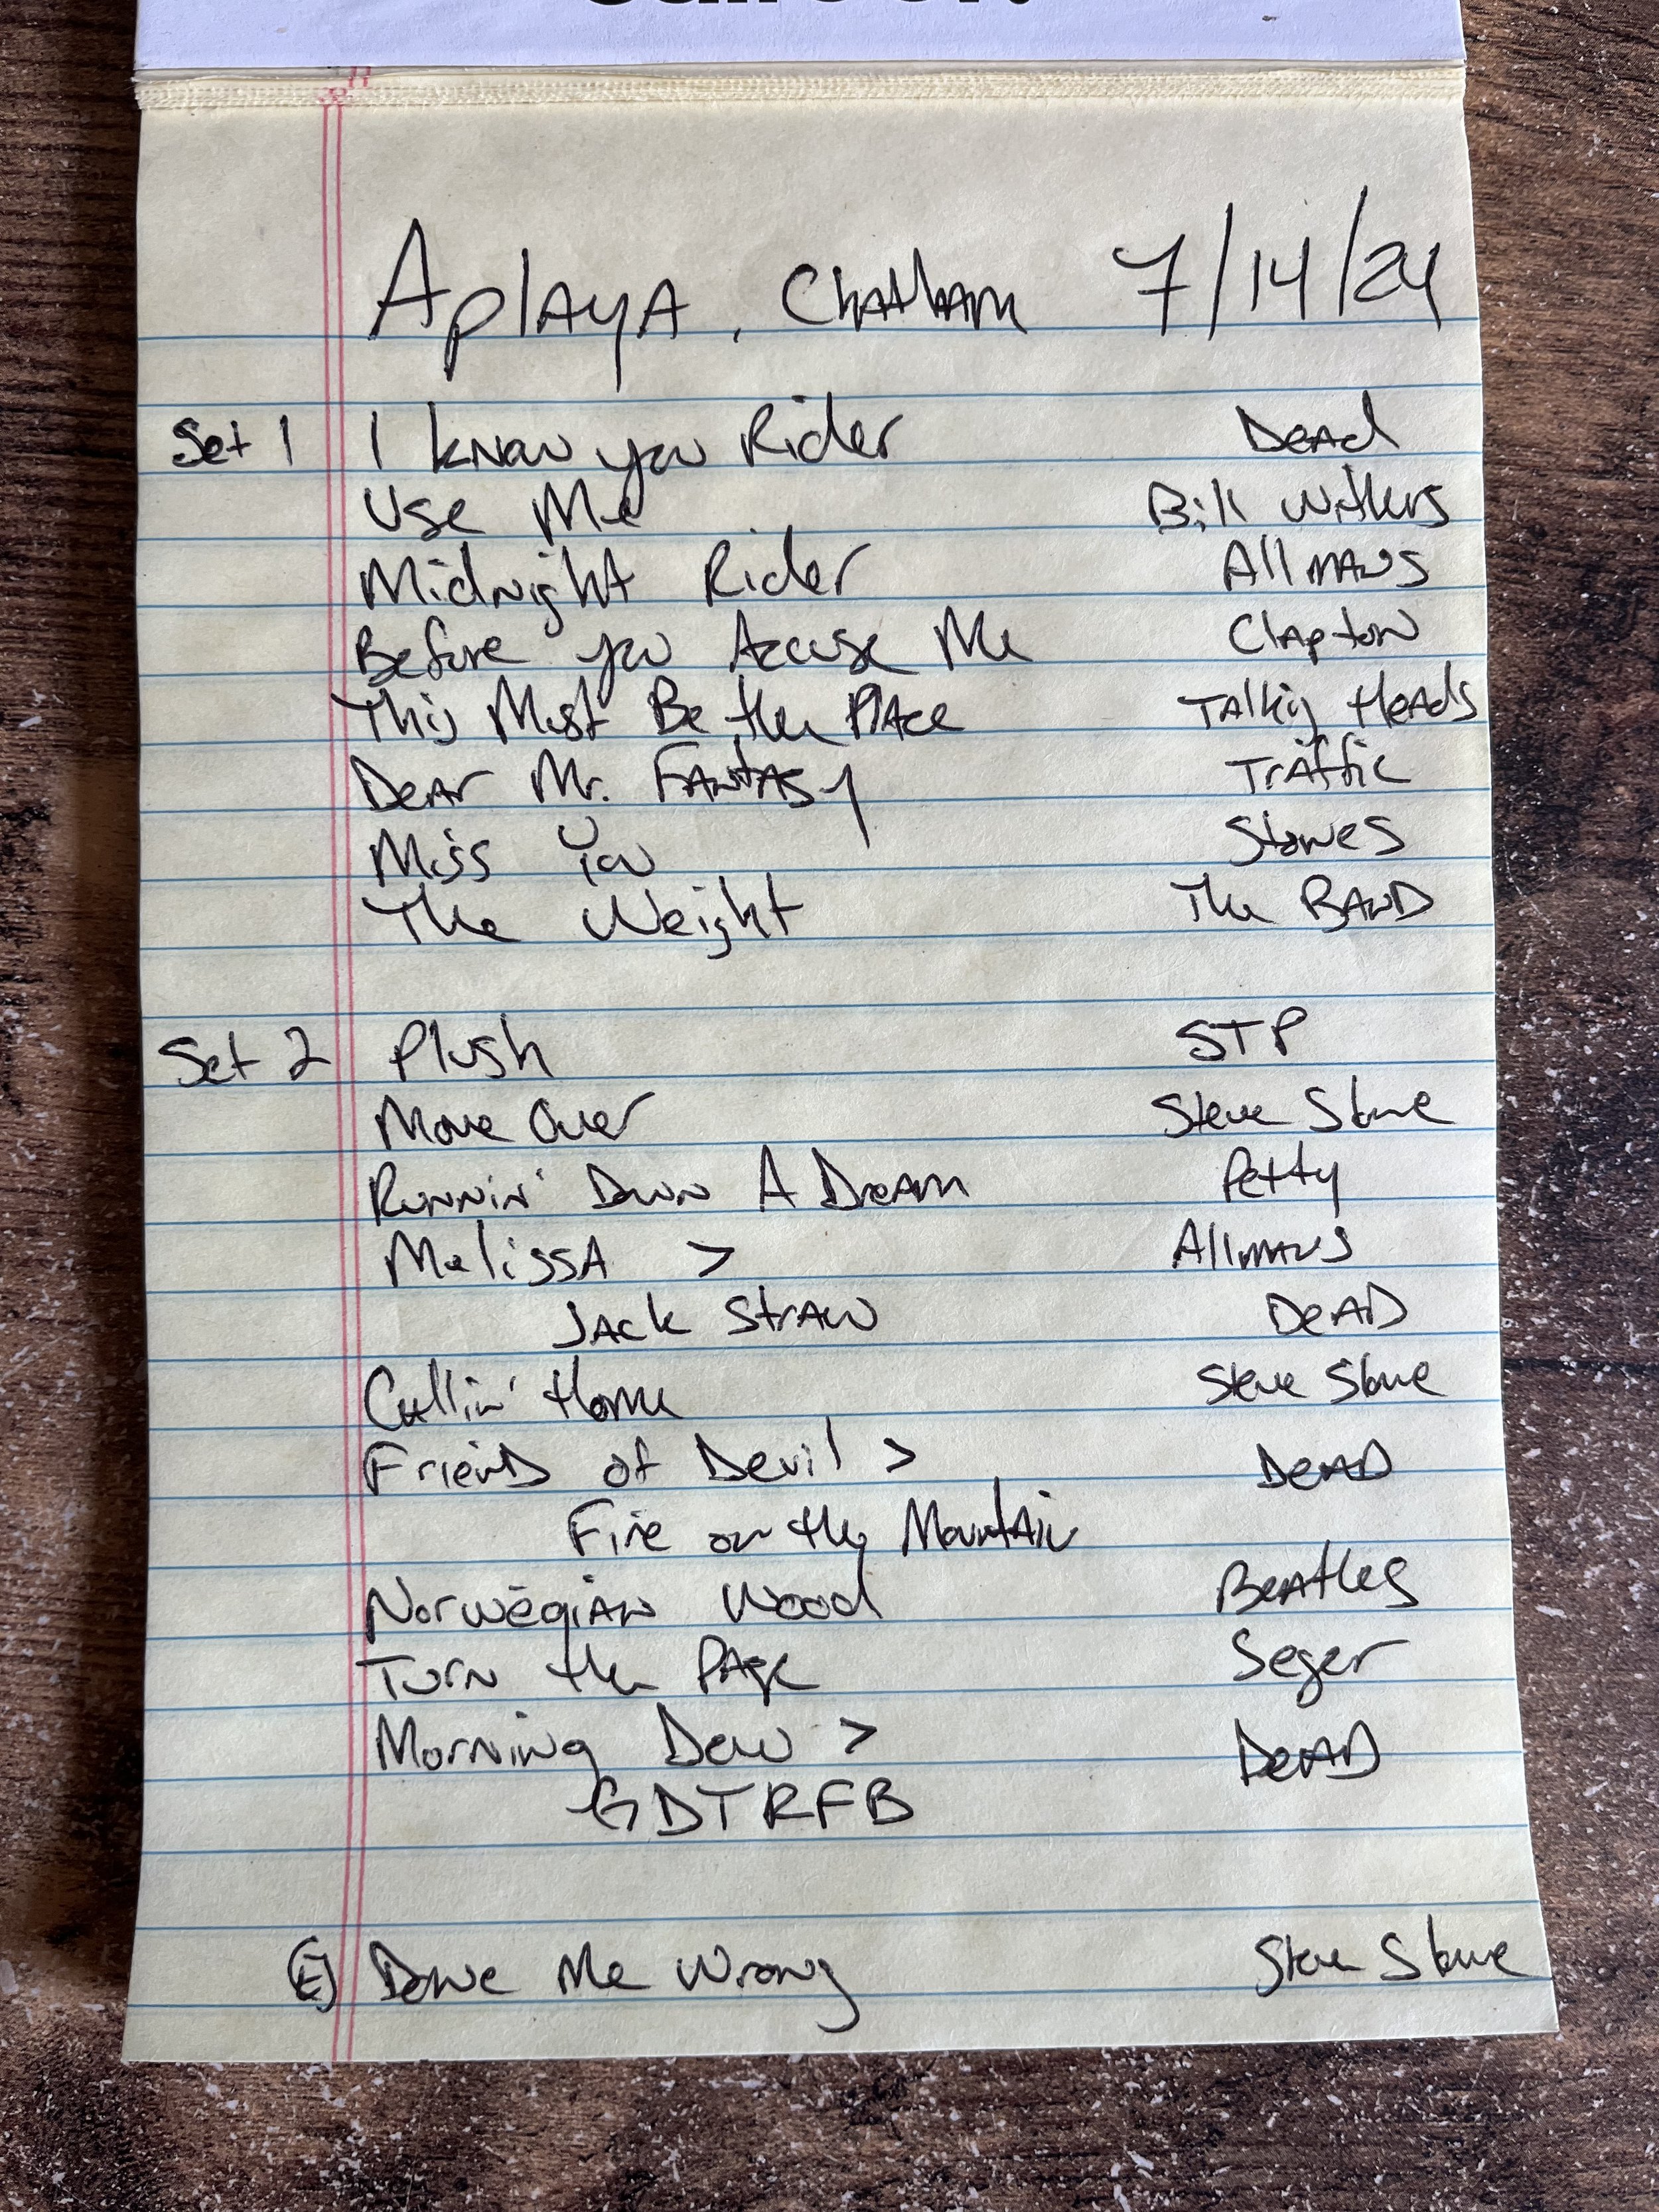 Aplaya, Chatham 7/14/24
Set 1 I know you Rider Dead
Use Me Bill Withers
Midnight Rider Allmans
Before you Accuse Me Clapton
This Must Be the Place Talking Heads
Dear Mr. Fantasy Traffic
Miss You Stones
The Weight The Band
Set 2 Plush STP
Move Over Steve Stone
Runnin' Down A Dream Petty
Melissa > Allmans
Jack Straw Dead
Callin' Home Steve Stone
Friend of Devil > Dead
Fire on the Mountain
Norwegian Wood Beatles
Turn the Page Seger
Morning Dew > Dead
GDTRFB
(E) Done Me Wrong Steve Stone